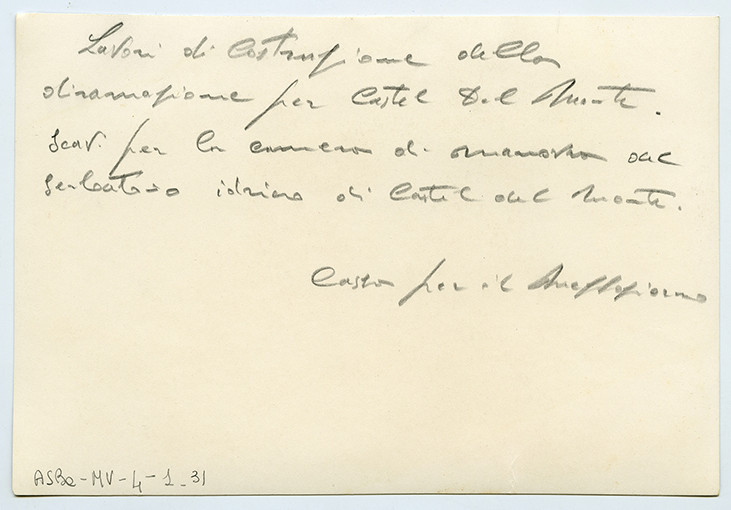 Lavori di Costruzione della
diramazione per Castel Del Monte.
Scavi per la camera di manovra del
serbatoio idrico di Castel del Monte.
Cassa per il Mezzogiorno
ASBa-MV-4-1-31